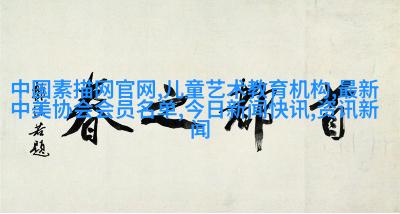 中国素描网官网,儿童艺术教育机构,最新
中美协会会员名单,今日新闻快讯,资讯新
闻
首都之春
若题